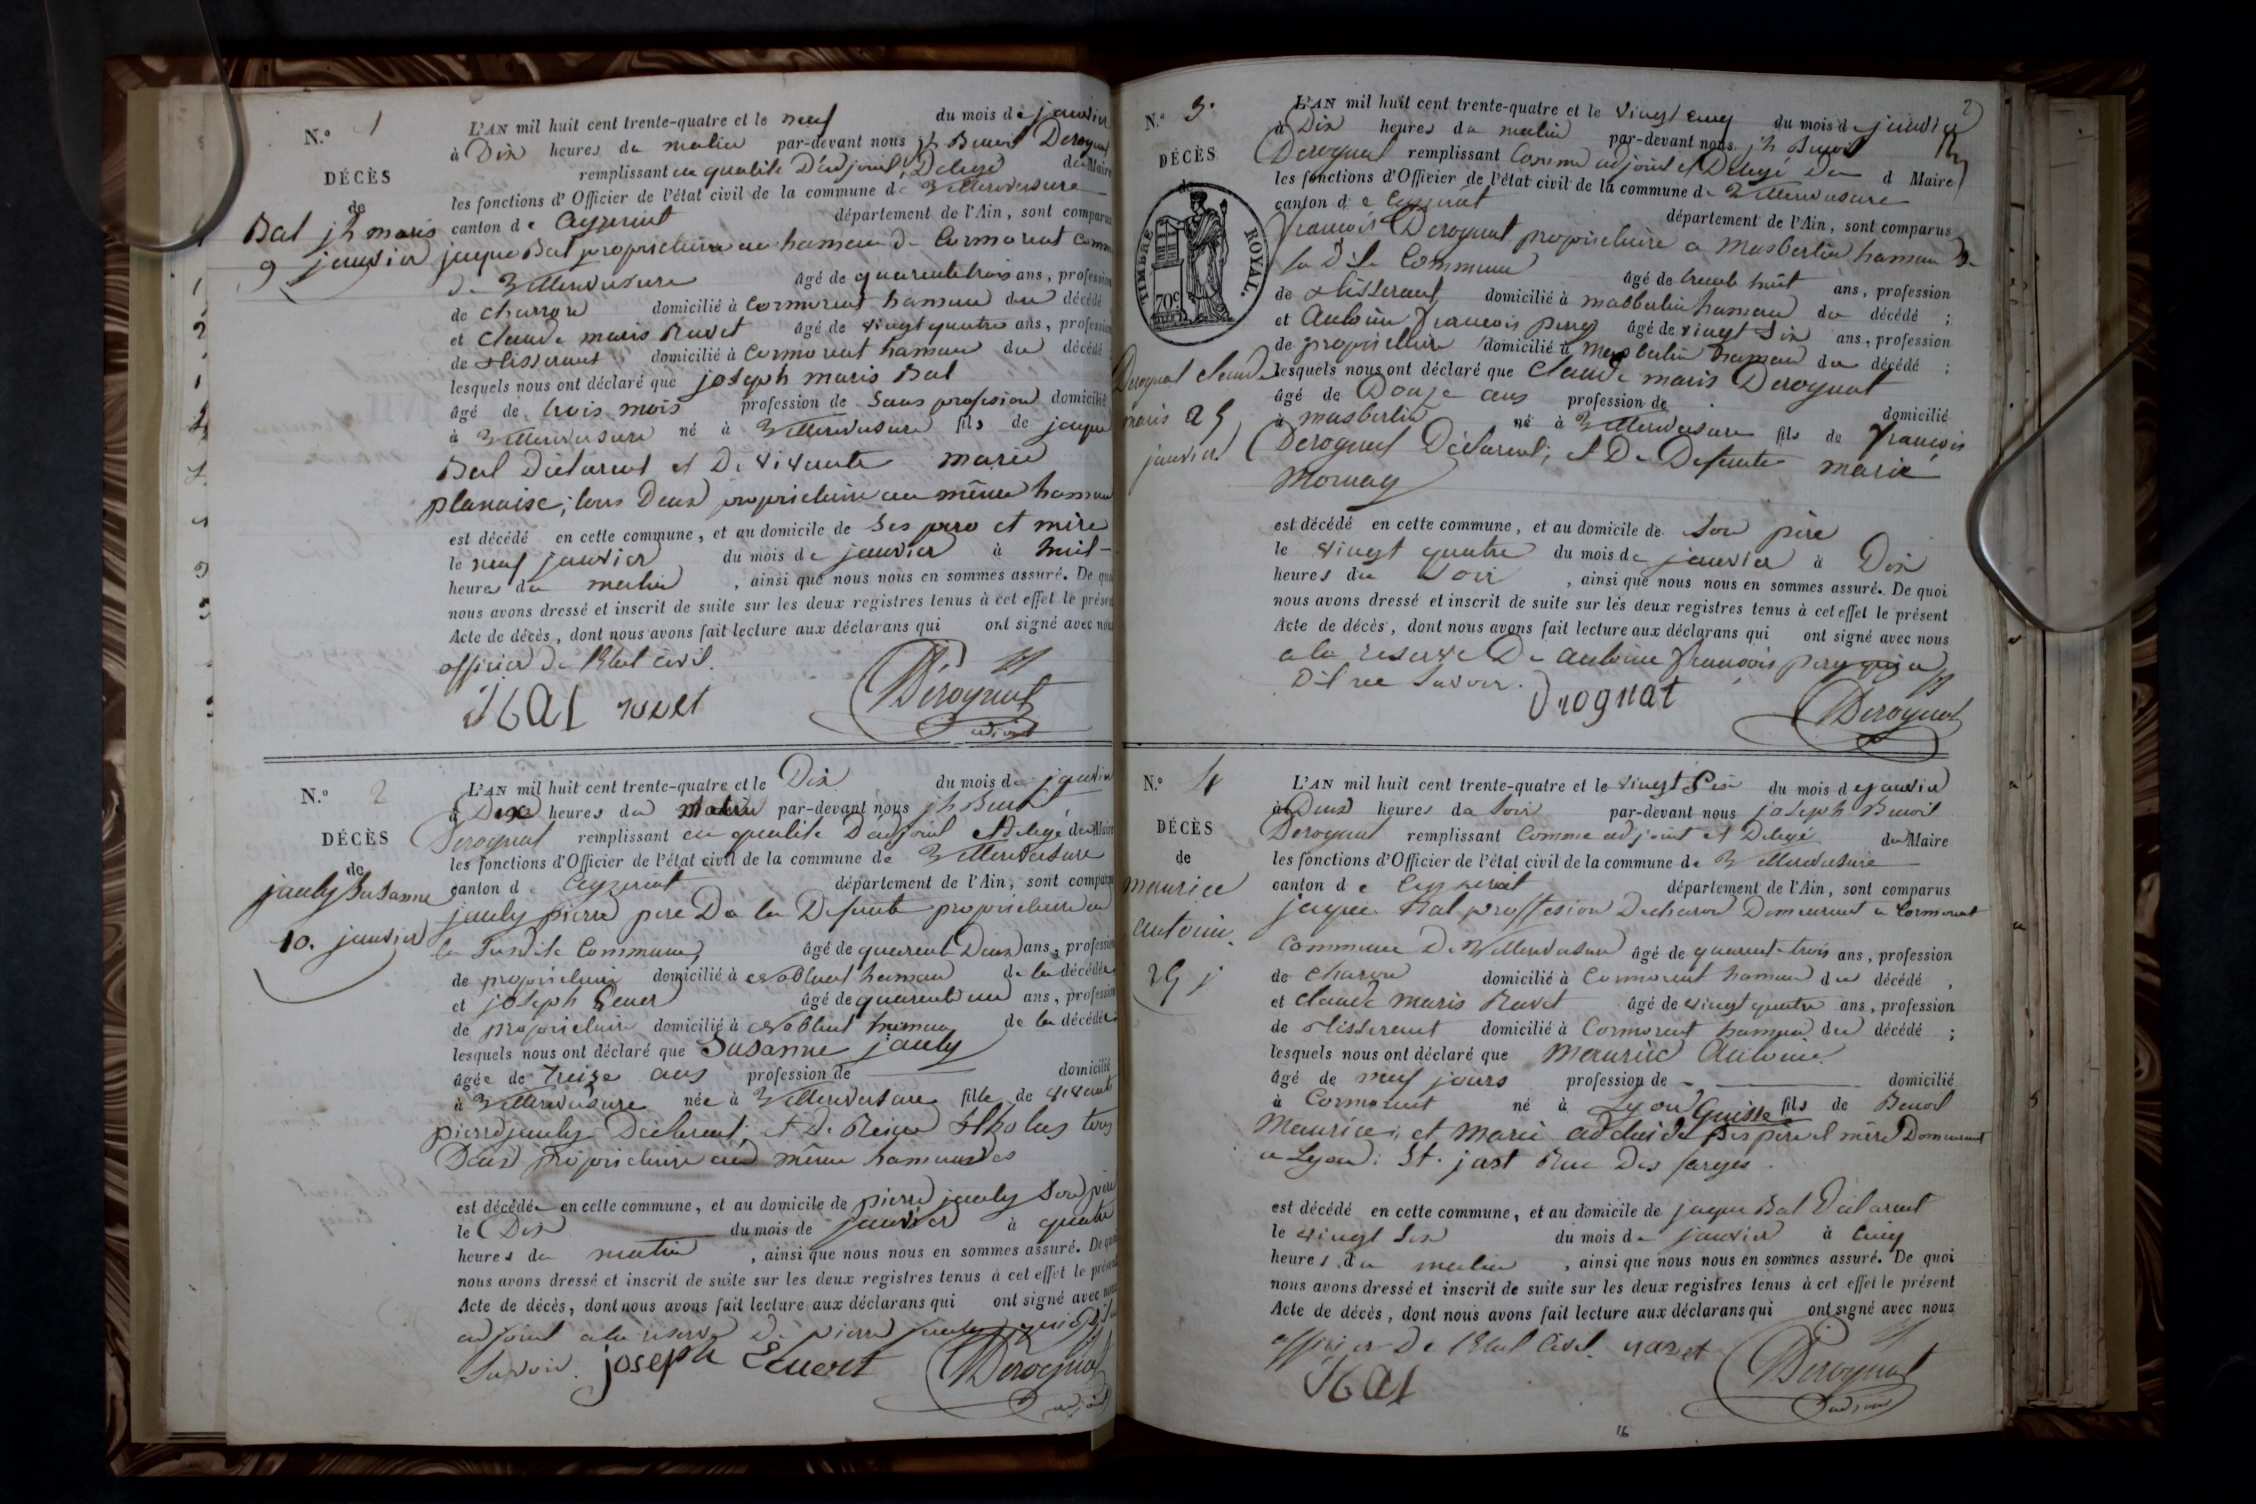 N.o 1
DÉCÈS
de
Bal jh marie
9 janvier
L'AN mil huit cent trente-quatre et le neuf du mois de janvier
à Dix heures du matin par-devant nous jh Benoit Derognat
remplissant en qualité D'adjoint, Delegé du Maire
les fonctions d'Officier de l'état civil de la commune de Villereversure
canton de Ceyzeriat département de l'Ain, sont comparus
jaque Bal proprietaire au hameau de Cormorent
de Villereversure âgé de quarente trois ans, profession
de charron domicilié à Cormorent hameau du décédé
et Claude marie Ravet âgé de vingt quatre ans, profession
de tisserant domicilié à Cormorent hameau du décédé
lesquels nous ont déclaré que joseph marie Bal
âgé de trois mois profession de sans profession domicilié
à Villereversure né à Villereversure fils de jaque
Bal Déclarent et De vivante marie
planaise; tous Deux proprietaire au même hameau
est décédé en cette commune, et au domicile de ses pere et mère
le neuf janvier du mois de janvier à huit
heures du matin, ainsi que nous nous en sommes assuré. De quoi
nous avons dressé et inscrit de suite sur les deux registres tenus à cet effet le présent
Acte de décès, dont nous avons fait lecture aux déclarans qui ont signé avec nous
officier de l'Etat civil.
JBal ravet Derognat
adjoint
N.o 2
DÉCÈS
de
jauly Susanne
10. janvier
L'AN mil huit cent trente-quatre et le Dix du mois de janvier
à heures du matin par-devant nous jh Benoit
Derognat remplissant en qualité D'adjoint Delegé du Maire
les fonctions d'Officier de l'état civil de la commune de Villereversure
canton de Ceyzeriat département de l'Ain, sont comparus
jauly pierre pere De la Defunte proprietaire en
la susdite Commune, âgé de quarente Deux ans, profession
de proprietaire domicilié à hameau de la décédée
et joseph âgé de quarente un ans, profession
de proprietaire domicilié à hameau de la décédée
lesquels nous ont déclaré que Susanne jauly
âgée de treize ans profession de domicilié
à Villereversure née à Villereversure fille de vivant
pierre jauly Déclarent; et De Reine tous
Deux proprietaire au même hameau
est décédée en cette commune, et au domicile de pierre jauly son père
le Dix du mois de janvier à quatre
heures du matin, ainsi que nous nous en sommes assuré. De quoi
nous avons dressé et inscrit de suite sur les deux registres tenus à cet effet le présent
Acte de décès, dont nous avons fait lecture aux déclarans qui ont signé avec nous
adjoint a la reserve de pierre jauly
savoir. joseph Derognat
adjoint
2
N.o 3.
DÉCÈS
de
TIMBRE ROYAL.
70c
Derognat Claude
marie 25
janvier
L'AN mil huit cent trente-quatre et le vingt cinq du mois de janvier
à Dix heures du matin par-devant nous jh Benoit
Derognat remplissant Comme adjoint et Delegé Du d Maire
les fonctions d'Officier de l'état civil de la commune de Villereversure
canton de Ceyzeriat département de l'Ain, sont comparus
francois Derognat proprietaire a masbertin hameau De
la Dite Commune âgé de trente huit ans, profession
de tisserant domicilié à masbertin hameau du décédé ;
et Antoine francois perey âgé de vingt Six ans, profession
de proprietaire domicilié à masbertin hameau du décédé ;
lesquels nous ont déclaré que Claude marie Derognat
âgé de Douze ans profession de domicilié
à masbertin né à Villereversure fils de francois
Derognat Déclarent; et De Defunte marie
Mornay
est décédé en cette commune, et au domicile de son père
le vingt quatre du mois de janvier à Dix
heures du soir, ainsi que nous nous en sommes assuré. De quoi
nous avons dressé et inscrit de suite sur les deux registres tenus à cet effet le présent
Acte de décès, dont nous avons fait lecture aux déclarans qui ont signé avec nous
a la reserve De antoine francois perey qui a
Dit ne savoir.
Drognat Derognat
N.o 4
DÉCÈS
de
maurice
antoine.
L'AN mil huit cent trente-quatre et le vingt Six du mois de janvier
à Deux heures du soir par-devant nous joseph Benoit
Derognat remplissant Comme adjoint et Delegé du Maire
les fonctions d'Officier de l'état civil de la commune de Villereversure
canton de Ceyzeriat département de l'Ain, sont comparus
jaque Bal proffesion De charon Demeurent a Cormorent
Commune De Villereversure âgé de quarente trois ans, profession
de charon domicilié à Cormorent hameau du décédé,
et Claude marie Ravet âgé de vingt quatre ans, profession
de tisserent domicilié à Cormorent hameau du décédé ;
lesquels nous ont déclaré que Maurice Antoine
âgé de neuf jours profession de domicilié
à Cormorent né à Lyon fils de Benoit
Maurice; et Marie adelaide Guisse ses père et mère Demeurent
a Lyon; St. just Rue Des farges.
est décédé en cette commune, et au domicile de jaque Bal Déclarent
le vingt Six du mois de janvier à Cinq
heures du matin, ainsi que nous nous en sommes assuré. De quoi
nous avons dressé et inscrit de suite sur les deux registres tenus à cet effet le présent
Acte de décès, dont nous avons fait lecture aux déclarans qui ont signé avec nous
officier De l'Etat Civil. ravet
JBal Derognat
adjoint